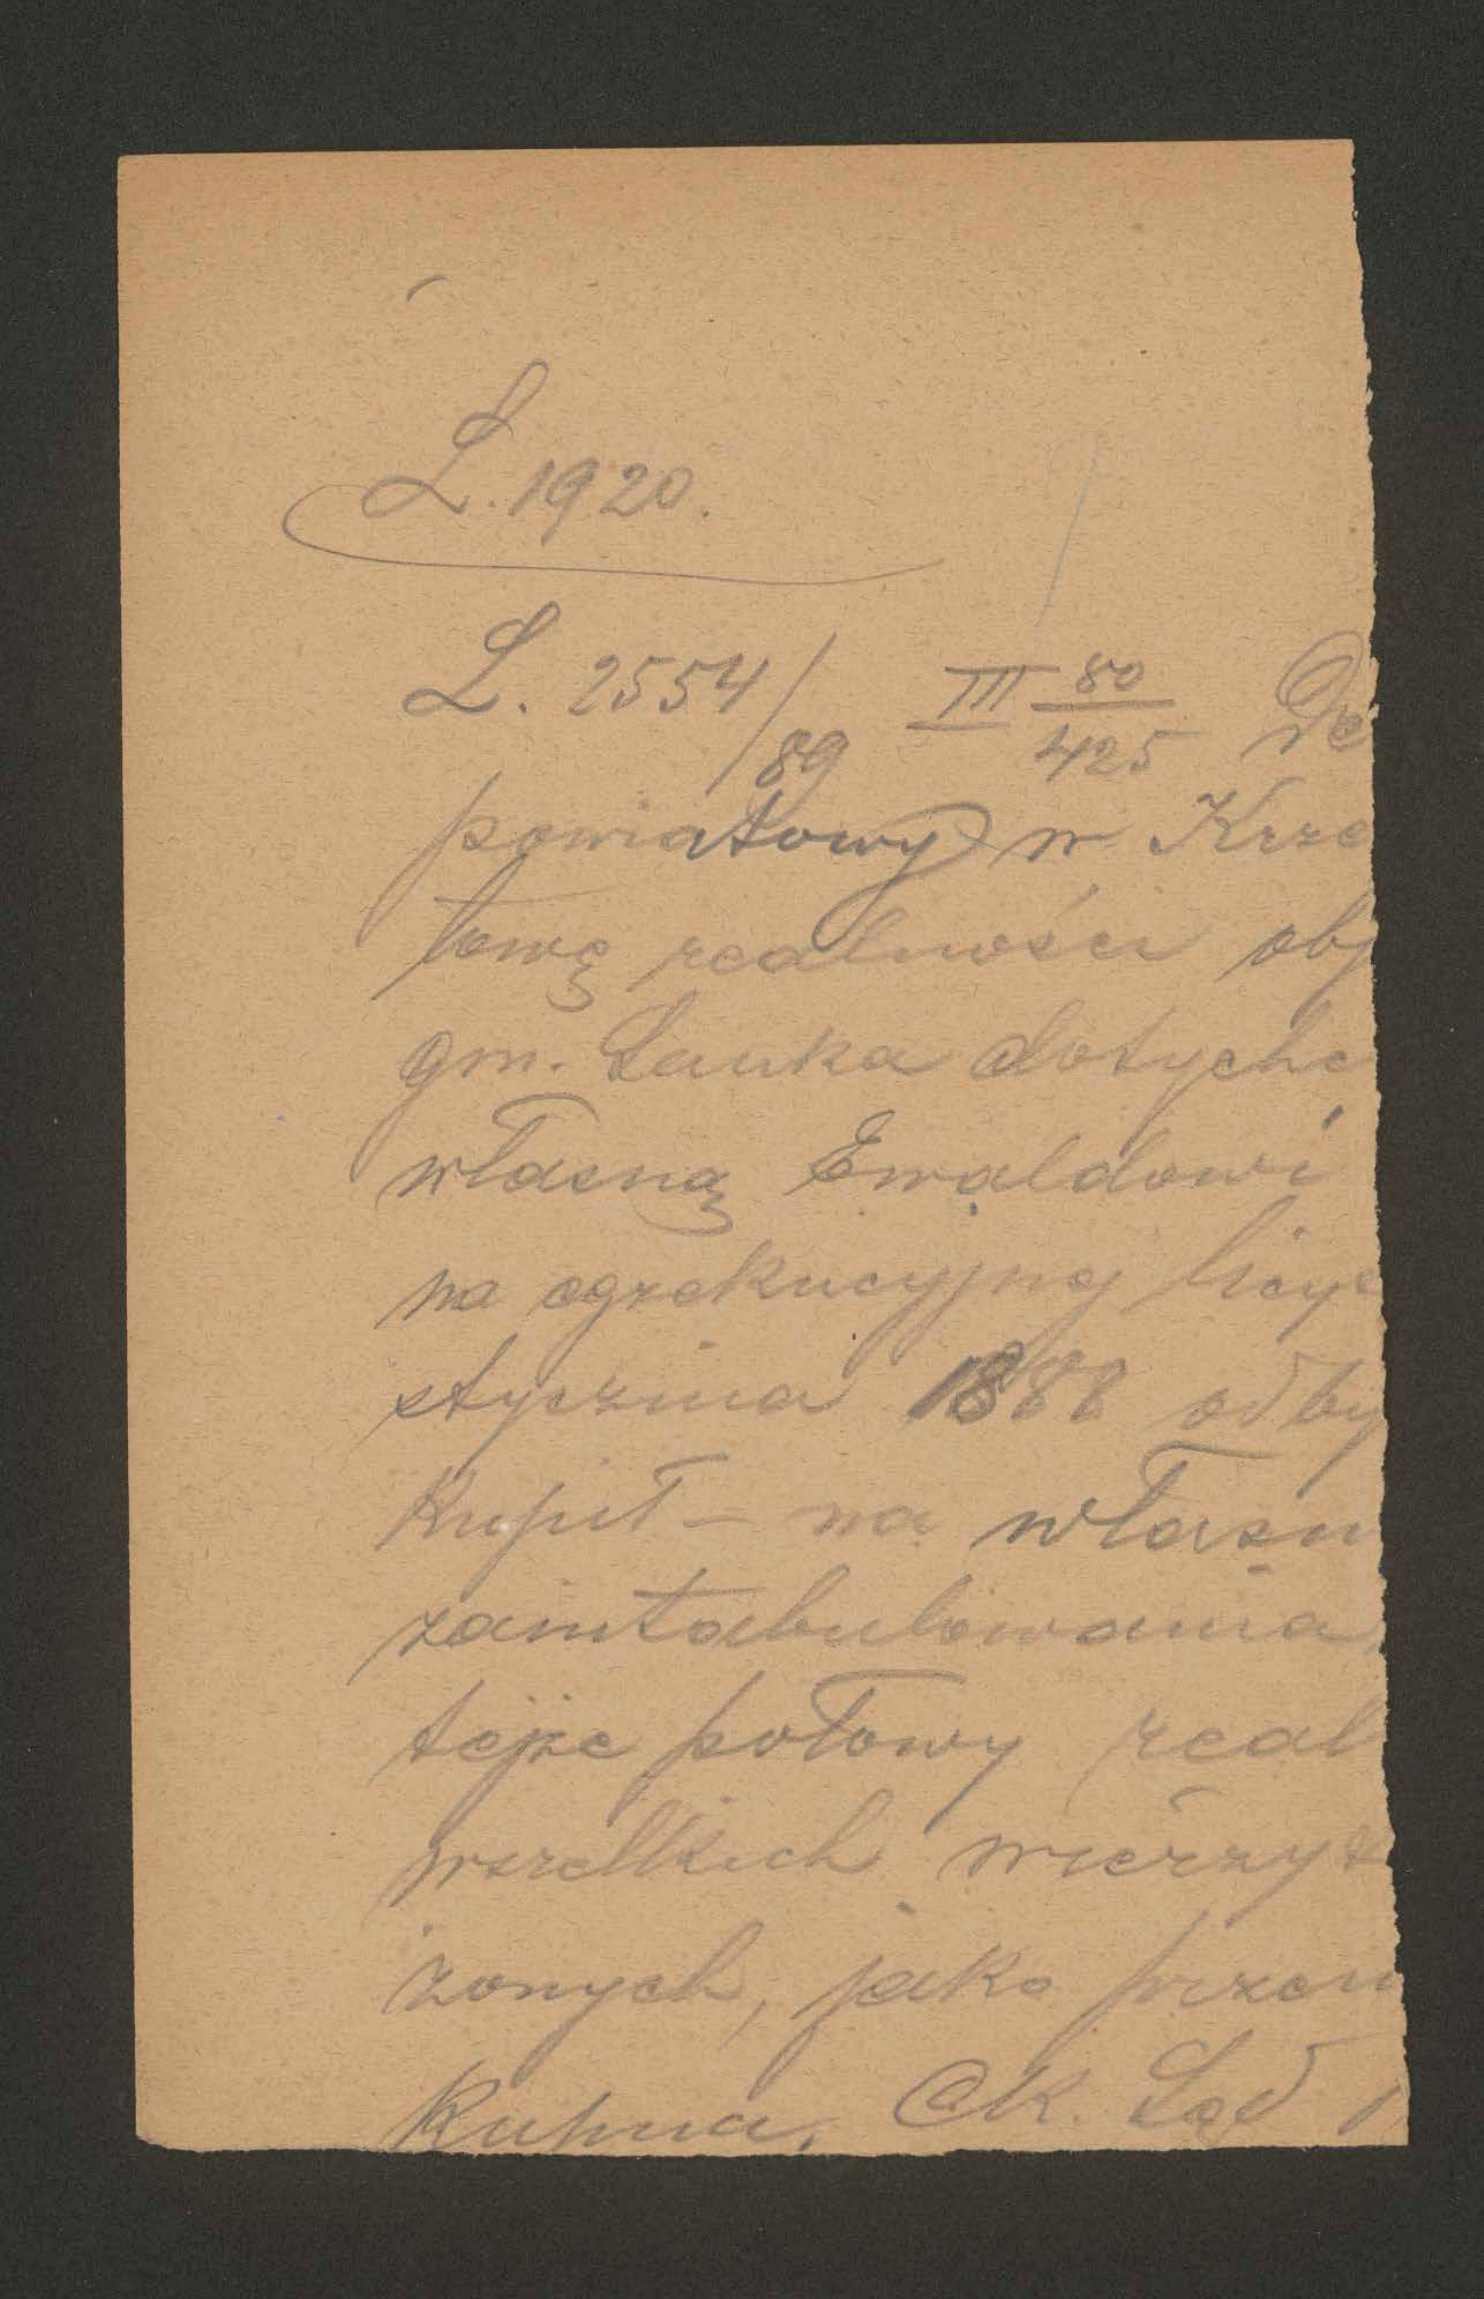 L. 1920.
L. 2554/89 III 80/425 De
powiatowy w Krze
towę realności obj
gm. Lauka dotychc
własną Ewaldowi
na egzekucyjnej licyt
stycznia 1888 odby
Kupił – na własn
zaintabulowania
tejże połowy real
wszelkich wierzyt
żonych, jako przen
Kupna. Ck. Sąd p